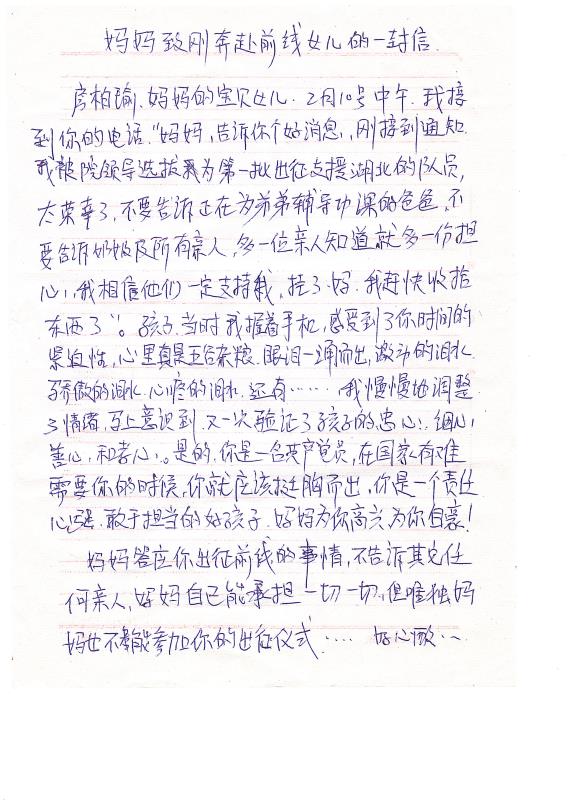 妈妈致刚奔赴前线女儿的一封信.
房柏瑜、妈妈的宝贝女儿. 2月10号中午. 我接
到你的电话.“妈妈, 告诉你个好消息, 刚接到通知.
我被院领导选拔为第一批出征支援湖北的队员,
太荣幸了, 不要告诉正在为弟弟辅导功课的爸爸, 不
要告诉奶奶及所有亲人, 多一位亲人知道就多一份担
心, 我相信他们一定支持我, 挂了妈. 我赶快收拾
东西了”。孩子. 当时我握着手机, 感受到了你时间的
紧迫性, 心里真是五谷杂粮. 眼泪一涌而出, 激动的泪水.
骄傲的泪水. 心疼的泪水. 还有…… 我慢慢地调整
了情绪, 马上意识到. 又一次验证了孩子的忠心, 细心,
善心, 和孝心。是的, 你是一名共产党员, 在国家有难
需要你的时候, 你就应该挺胸而出, 你是一个责任
心强. 敢于担当的好孩子. 妈妈为你高兴为你自豪!
妈妈答应你出征前线的事情, 不告诉其它任
何亲人, 妈妈自己能承担一切一切, 但唯独妈
妈也不能参加你的出征仪式…… 好心酸……